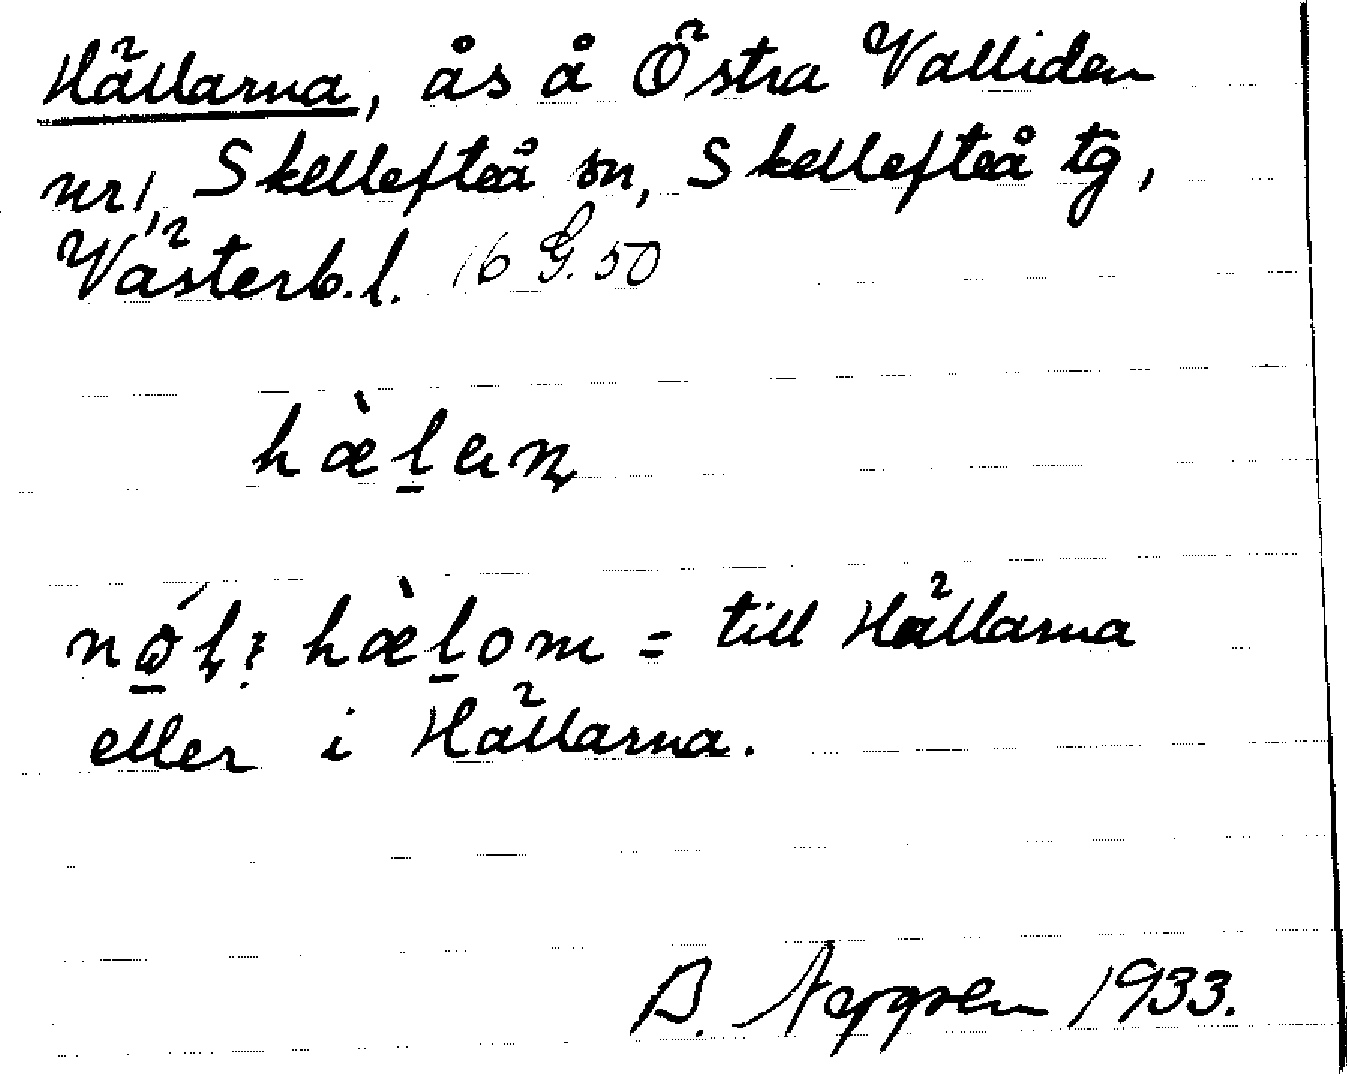 Hällarna, ås å Östra Valliden
nr 1, Skellefteå sn, Skellefteå tg,
Västerb. l. 16 G. 50
hæ̀l̲an̡
hæ̀l̲om = till Hällarna
eller i Hällarna.
B. 1933.